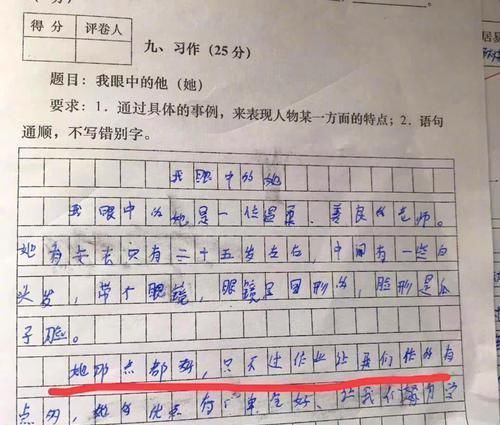 分)
得分 评卷人
九、习作(25分)
题目：我眼中的他(她)
要求：1．通过具体的事例，来表现人物某一方面的特点；2．语句
通顺，不写错别字。
我眼中的她
我眼中的她是一位温柔、善良的老师。
她看上去只有二十五岁左右，中间有一些白
头发，带个眼镜，眼镜是圆形的，脸形是瓜
子脸。
她哪点都好，只不过作业让我们作的有
点多，她的优点有